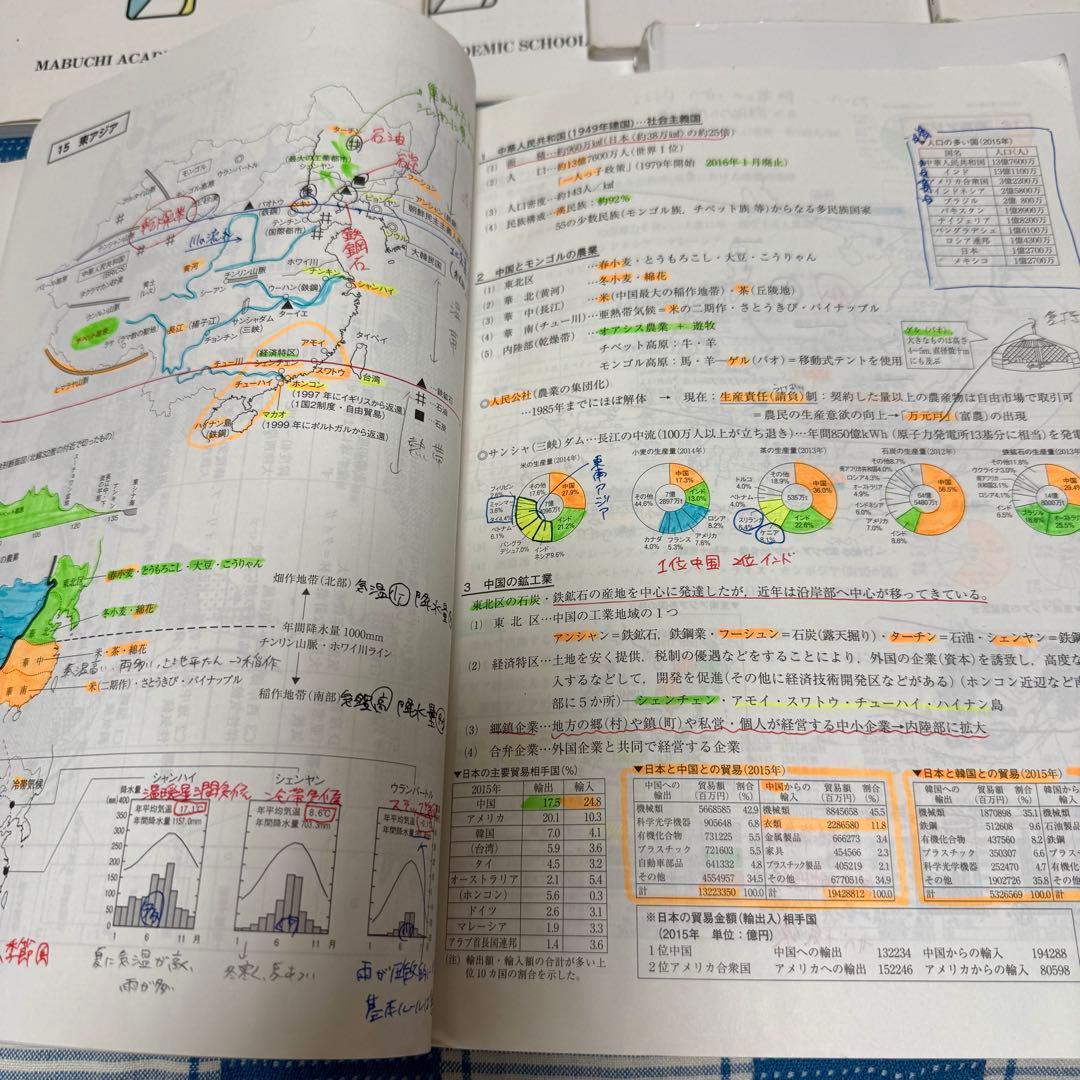 MABUCHI ACAD
DEMIC SCHOOL
15 東アジア
ターチン
石油
最大の工業都市
シェンヤン
フーシュン
アンシャン(鉄鋼)
モンゴル
ウランバートル
モンゴル高原
ゴビ砂漠
パオトウ
(鉄鋼)
ペキン
テンチン
(国際都市)
ピョンヤン
ソウル
朝鮮民主主義人
大韓民国
鉄鋼石
中華人民共和国
(BRICS)
タクラマカン砂漠
黄河
ホワイ川
チンリン山脈
シーアン
ナンキン
シャンハイ
ウーハン(鉄鋼)
ターイエ
長江(揚子江)
サンシャダム
(三峡)
チョンチン
チベット高原
ヒマラヤ山脈
チュー川
アモイ
(経済特区)
シェンチェン
スワトウ
タイペイ
台湾
チューハイ
ホンコン
(1997年にイギリスから返還)
(1国2制度・自由貿易)
マカオ
(1999年にポルトガルから返還)
ハイナン島
(鉄鋼)
▲…鉄鉱石
#…石油
■…石炭
熱帯
東シナ海
105
120
135
東北区
春小麦・とうもろこし・大豆・こうりゃん
華北
冬小麦・綿花
華中
米・茶・綿花
華南
米(二期作)・さとうきび・パイナップル
畑作地帯(北部)
気温低 降水量
年間降水量 1000mm
チンリン山脈・ホワイ川ライン
稲作地帯(南部)
気温高 降水量
冷帯気候
シャンハイ
温暖湿潤気候
降水量
400(mm)
年平均気温 17.1℃
年間降水量 1157.0mm
350
300
250
200
150
100
50
1 6 11 月
シェンヤン
冷帯気候
年平均気温 8.6℃
年間降水量 703.3mm
1 6 11 月
ウランバートル
年平均気温
年間降水量
1 6
季節風
夏に気温が高く
雨が多
1 中華人民共和国(1949年建国)…社会主義国
(1) 面 積…約960万㎢(日本〈約38万㎢〉の約25倍)
(2) 人 口…約13億7600万人(世界1位)
「一人っ子政策」(1979年開始 2016年1月廃止)
(3) 人口密度…約143人/㎢
(4) 民族構成…漢民族:約92%
55の少数民族(モンゴル族,チベット族など)からなる多民族国家
▼人口の多い国(2015年)
国名 人口(人)
中華人民共和国 13億7600万
インド 13億1100万
アメリカ合衆国 3億2200万
インドネシア 2億5800万
ブラジル 2億 800万
パキスタン 1億8900万
ナイジェリア 1億8200万
バングラデシュ 1億6100万
ロシア連邦 1億4300万
日本 1億2700万
メキシコ 1億2700万
2 中国とモンゴルの農業
(1) 東北区 …春小麦・とうもろこし・大豆・こうりゃん
(2) 華 北(黄河) …冬小麦・綿花
(3) 華 中(長江) …米(中国最大の稲作地帯)・茶(丘陵地)
(4) 華 南(チュー川)…亜熱帯気候=米の二期作・さとうきび・パイナップル
(5) 内陸部(乾燥帯) …オアシス農業 + 遊牧
チベット高原:牛・羊
モンゴル高原:馬・羊―ゲル(パオ)=移動式テントを使用
ゲル(パオ)
大きなものは高さ
4~5m,直径数十m
にも及ぶ
◎人民公社(農業の集団化)
…1985年までにほぼ解体 → 現在:生産責任(請負)制:契約した量以上の農産物は自由市場で取引可
=農民の生産意欲の向上→「万元戸」(富農)の出現
◎サンシャ(三峡)ダム…長江の中流(100万人以上が立ち退き)…年間850億kWh(原子力発電所13基分に相当)を発電
米の生産量(2014年)
中国 27.9%
インド 21.2%
インドネシア9.6%
バングラデシュ7.0%
ベトナム 6.1%
タイ4.4%
ミャンマー 3.6%
フィリピン 2.6%
その他 17.6%
東南アジア
小麦の生産量(2014年)
中国 17.3%
インド 13.0%
ロシア 8.2%
アメリカ 7.6%
フランス 5.3%
カナダ 4.0%
その他 44.6%
7億2897万t
茶の生産量(2013年)
中国 36.0%
インド 22.6%
ケニア 8.1%
スリランカ 6.4%
ベトナム 4.0%
トルコ 4.0%
その他 18.9%
535万t
石炭の生産量(2012年)
中国 56.5%
インド 8.6%
アメリカ 7.0%
インドネシア 6.0%
オーストラリア 4.9%
ロシア4.3%
南アフリカ共和国4.0%
その他8.7%
鉄鉱石の生産量(2013
その他11.6%
ウクライナ3.0%
ロシア4.1%
インド
ブラジル
オースト
25.5%
1位中国 2位インド
3 中国の鉱工業
東北区の石炭・鉄鉱石の産地を中心に発達したが,近年は沿岸部へ中心が移ってきている。
(1) 東 北 区…中国の工業地域の1つ
アンシャン=鉄鉱石,鉄鋼業・フーシュン=石炭(露天掘り)・ターチン=石油・シェンヤン=鉄鋼
(2) 経済特区…土地を安く提供,税制の優遇などをすることにより,外国の企業(資本)を誘致し,高度な
入するなどして,開発を促進(その他に経済技術開発区などがある)(ホンコン近辺など南
部に5か所)―シェンチェン・アモイ・スワトウ・チューハイ・ハイナン島
(3) 郷鎮企業…地方の郷(村)や鎮(町)や私営・個人が経営する中小企業→内陸部に拡大
(4) 合弁企業…外国企業と共同で経営する企業
▼日本の主要貿易相手国(%)
2015年 輸出 輸入
中国 17.5 24.8
アメリカ 20.1 10.3
韓国 7.0 4.1
(台湾) 5.9 3.6
タイ 4.5 3.2
オーストラリア 2.1 5.4
(ホンコン) 5.6 0.3
ドイツ 2.6 3.1
マレーシア 1.9 3.3
アラブ首長国連邦 1.4 3.6
(注) 輸出額・輸入額の合計が多い上
位10カ国の割合を示した。
▼日本と中国との貿易(2015年)
中国への輸出 貿易額(百万円) 割合(%) 中国からの輸入 貿易額(百万円) 割合(%)
機械類 5668885 42.9 機械類 8845658 45.5
科学光学機器 905648 6.8 衣類 2286580 11.8
有機化合物 731225 5.5 金属製品 666273 3.4
プラスチック 721603 5.5 家具 454566 2.3
自動車部品 641332 4.8 プラスチック製品 405219 2.1
その他 4554957 34.5 その他 6770516 34.9
計 13223350 100.0 計 19428812 100.0
▼日本と韓国との貿易(2015年)
韓国への輸出 貿易額(百万円) 割合(%) 韓国から輸入
機械類 1870898 35.1 機械類
鉄鋼 512608 9.6 石油製品
有機化合物 437560 8.2 鉄鋼
プラスチック 350307 6.6 プラスチ
科学光学機器 252470 4.7 有機化
その他 1902726 35.8 その他
計 5326569 100.0 計
※日本の貿易金額(輸出入)相手国
(2015年 単位:億円)
1位中国 中国への輸出 132234 中国からの輸入 194288
2位アメリカ合衆国 アメリカへの輸出 152246 アメリカからの輸入 80598